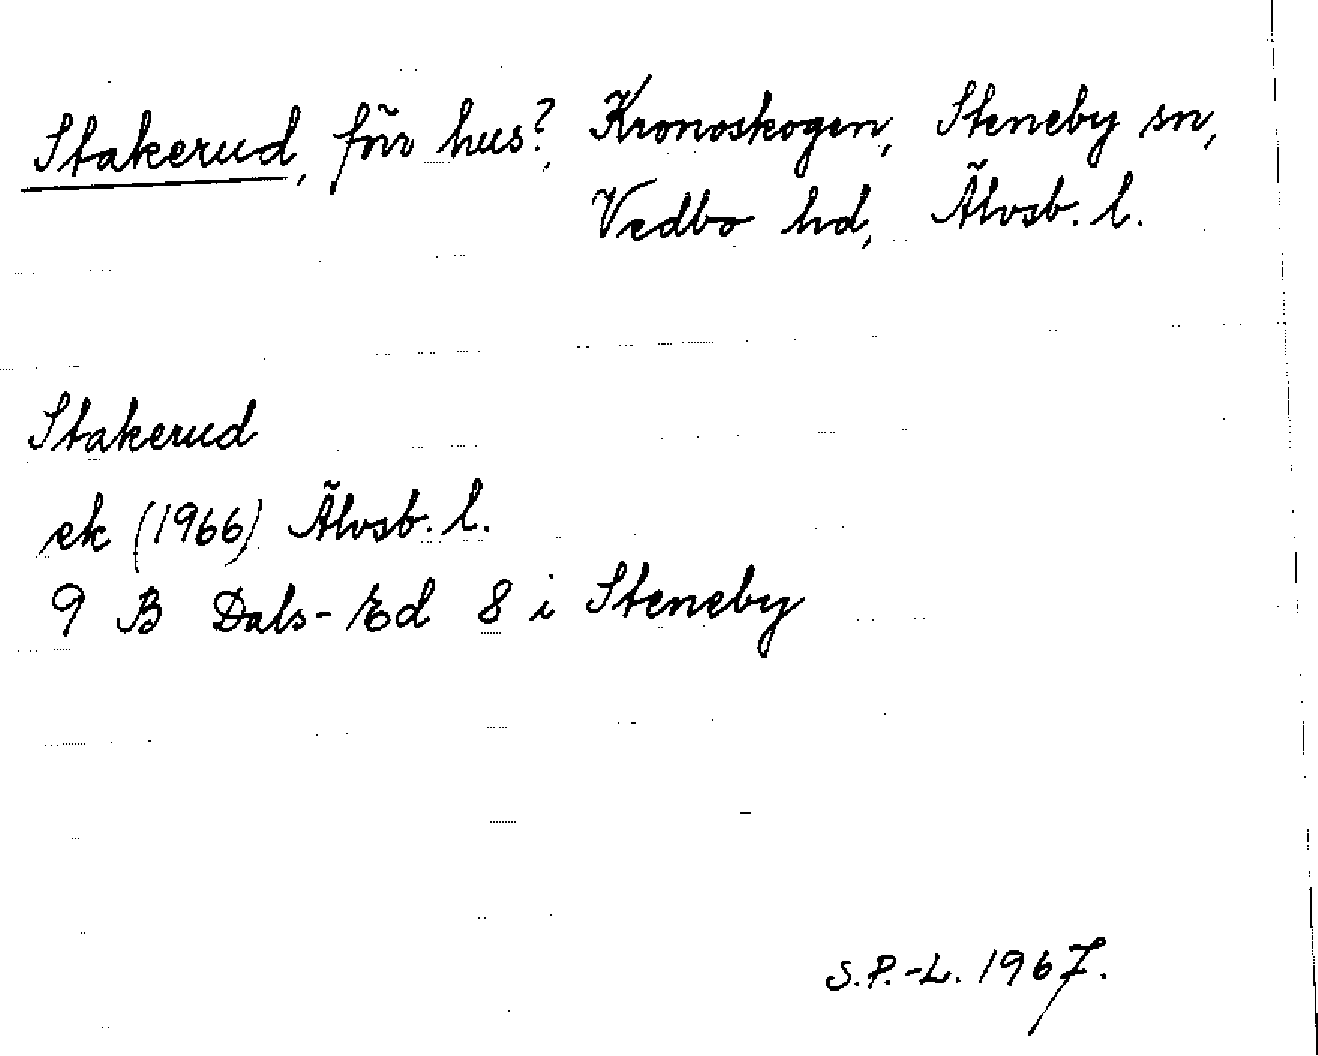 Stakerud, för hus?, Kronoskogen, Steneby sn,
Vedbo hd, Älvsb. l.
Stakerud
ek (1966) Älvsb. l.
9 B Dals-Ed 8 i Steneby
S.P.-L. 1967.